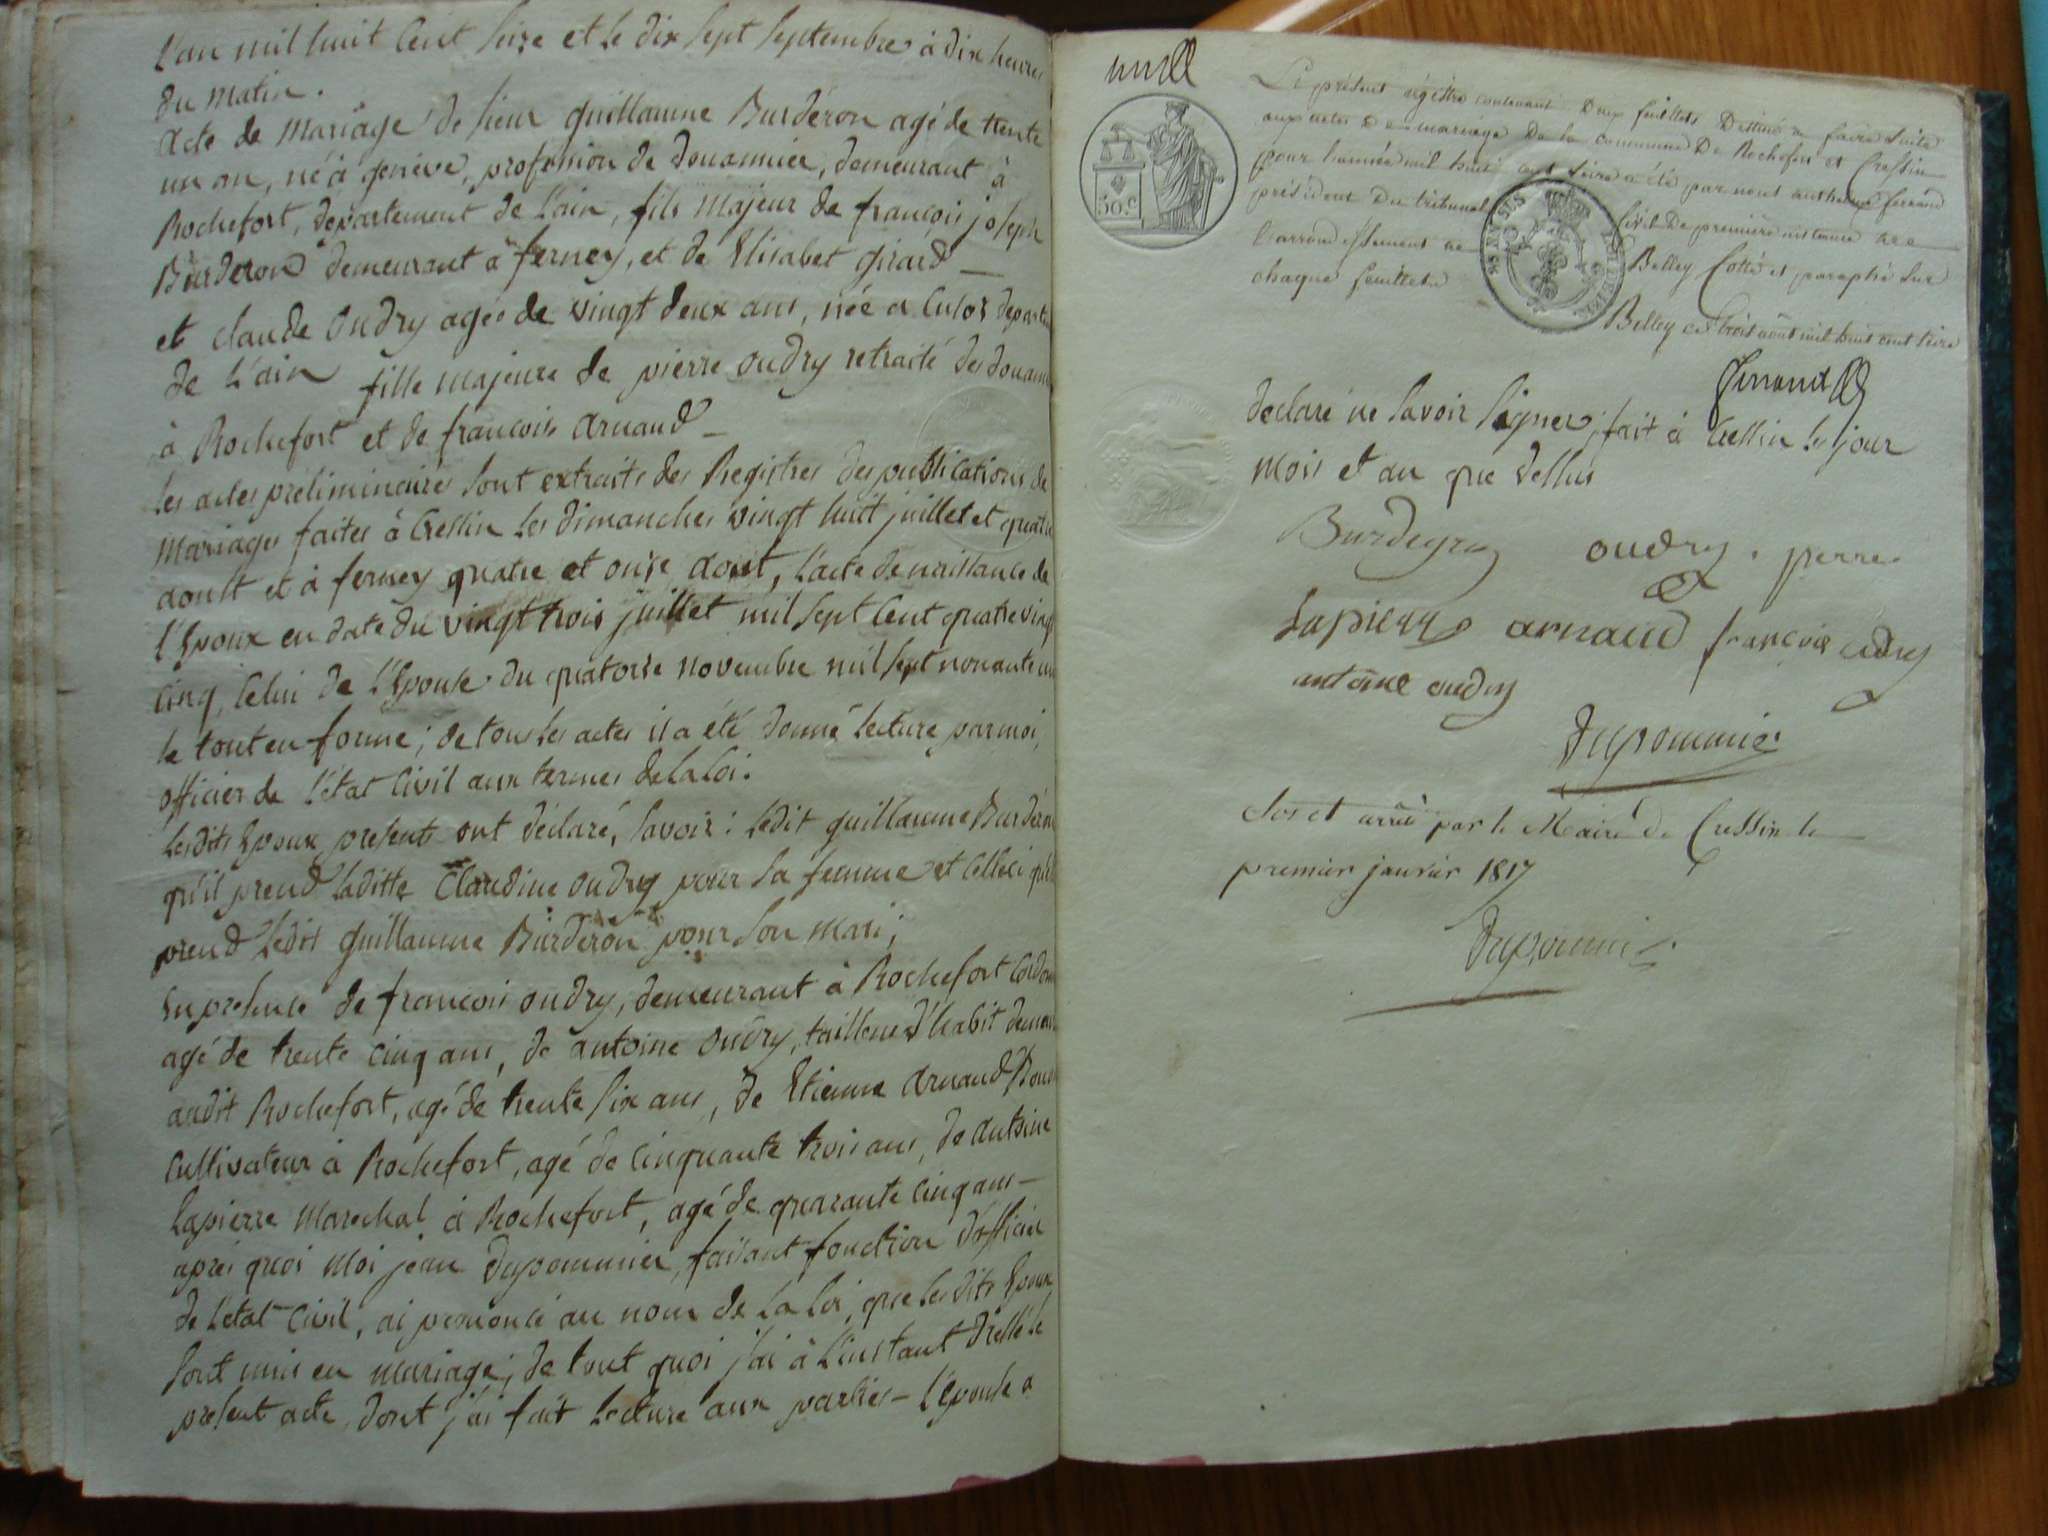 L'an mil huit Cent Seize et le dix Sept Septembre à dix heures
du matin.
Acte de Mariage de Sieur Guillaume Burdéron agé de trente
un an, né à genève, profession de douannier, demeurant à
Rochefort, département de l'ain, fils majeur de françois joseph
Burderon demeurant à ferney, et de Elisabet girard
et claude oudry agée de vingt deux ans, née a Culoz departem
de L'ain fille majeure de pierre oudry retraité des douannes
à Rochefort et de francoise arnaud
Les actes préliminaires Sont extraits des Registres des publications de
Mariages faites à Cressin les dimanches vingt huit juillet et quatre
aoust et à ferney quatre et onze aout, l'acte de naissance de
l'Epoux en date du vingt trois juillet mil Sept Cent quatre vingt
cinq, Celui de l'Epouse du quatorze novembre mil Sept nonante un
le tout en forme; de tous les actes il a été donné lecture par moi,
officier de l'état Civil aux termes de la loi.
Lesdits Epoux présents ont déclaré, Savoir: ledit guillaume Burdéron
qu'il prend laditte Claudine oudry pour Sa femme et Celleci quelle
prend ledit guillaume Burderon pour Son mari;
En présence de francois oudry, demeurant à Rochefort Cordon
agé de trente cinq ans, de antoine oudry, tailleur d'habit demeur
audit Rochefort, agé de trente Six ans, de Etienne arnaud
Cultivateur à Rochefort, agé de Cinquante trois ans, de antoine
Lapierre Marechal à Rochefort, agé de quarante Cinq ans
après quoi Moi jean Dupommier, faisant fonction d'officier
de l'état Civil, ai prononcé au nom de la loi, que lesdits Epoux
Sont unis en mariage; de tout quoi j'ai à l'instant dressé le
présent acte, dont j'ai fait lecture aux parties - l'épouse a
50.c
Le présent régistre contenant Deux feuillets Destiné a faire Suite
aux actes De mariage De la commune De Rochefort et Cressin
pour l'année mil huit cent Seize a été par nous anthelme ferrand
président Du tribunal Civil De premiere instance De
l'arrondissement de Belley Cotté et paraphé Sur
chaque feuillets
Belley ce trois août mil huit cent Seize
declaré ne Savoir Signer, fait à Cressin les jour
Mois et an que dessus
oudry. pierre
Lapierre arnaud françois oudry
antoine oudry
Dupommier
Clos et arreté par le Maire De Cressin le
premier janvier 1817
Dupommier